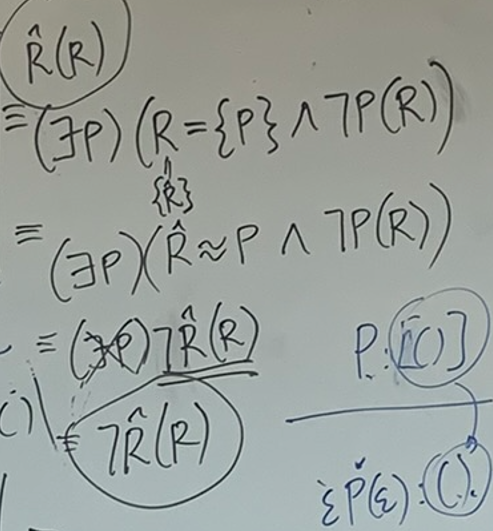 R̂(R)
≡ (∃P)(R = {P} ∧ ¬P(R))
{R̂}
≡ (∃P)(R̂ ≈ P ∧ ¬P(R))
≡ (∃P) ¬R̂(R)
≡ ¬R̂(R)
P: [()]
έP̌(ε): ().